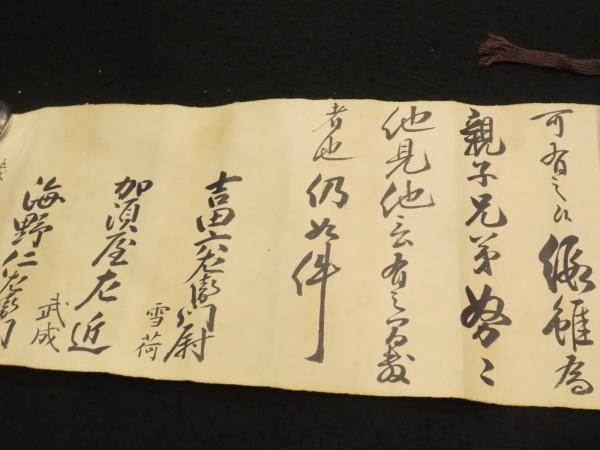 可有之候縦雖為
親子兄弟努々
他見他言有之間敷
者也仍如件
吉田六左衛門尉
雪荷
加須屋左近
武成
海野仁左衛門